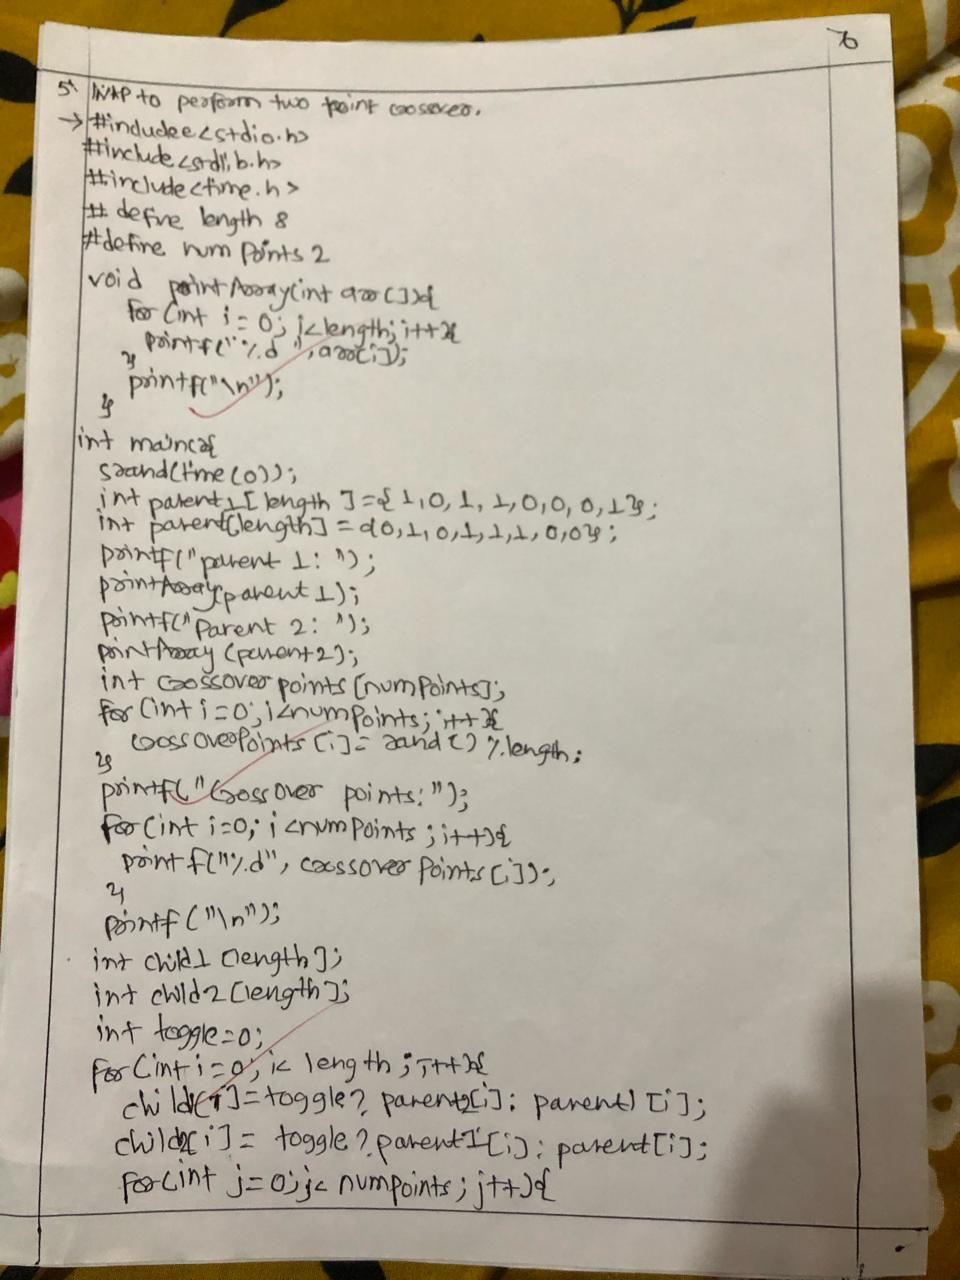 76
5) WAP to perform two point crossover.
→ #includee<stdio.h>
#include<stdlib.h>
#include<time.h>
# define length 8
#define num Points 2
void printArray(int arr[]){
for (int i = 0; i<length; i++){
printf("%d ", arr[i]);
}
printf("\n");
}
int main(){
srand(time(0));
int parent1[length] = {1,0,1,1,0,0,0,1};
int parent[length] = {0,1,0,1,1,1,0,0};
printf("parent 1: ");
printArray(parent1);
printf("Parent 2: ");
printArray(parent2);
int crossover points [numPoints];
for (int i=0; i<numPoints; i++){
crossoverPoints [i] = rand() % length;
}
printf("Crossover points:");
for (int i=0; i<numPoints; i++){
printf("%d", crossover Points[i]);
}
printf("\n");
int child1 [length];
int child2 [length];
int toggle=0;
for (int i=0; i< length; i++){
child1[i]=toggle? parent2[i]: parent1[i];
child2[i] = toggle? parent1[i]: parent[i];
for(int j=0; j< numpoints; j++){